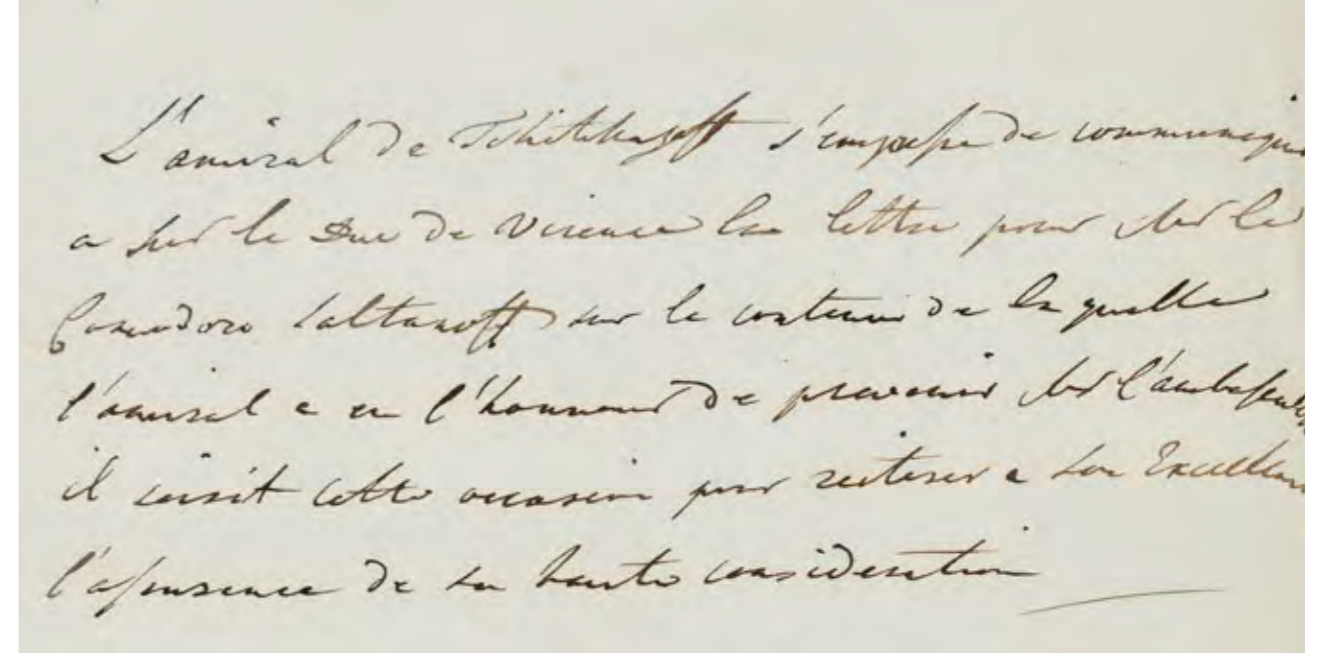 L'amiral de Tchitchagoff s'empresse de communiquer
a Mr le Duc de Vicence la lettre pour Mr le
Comodore Saltanoff sur le contenu de la quelle
l'amiral a eu l'honneur de prevenir Mr l'ambassadeur
il saisit cette occasion pour reiterer a son Excellence
l'assurance de sa haute consideration